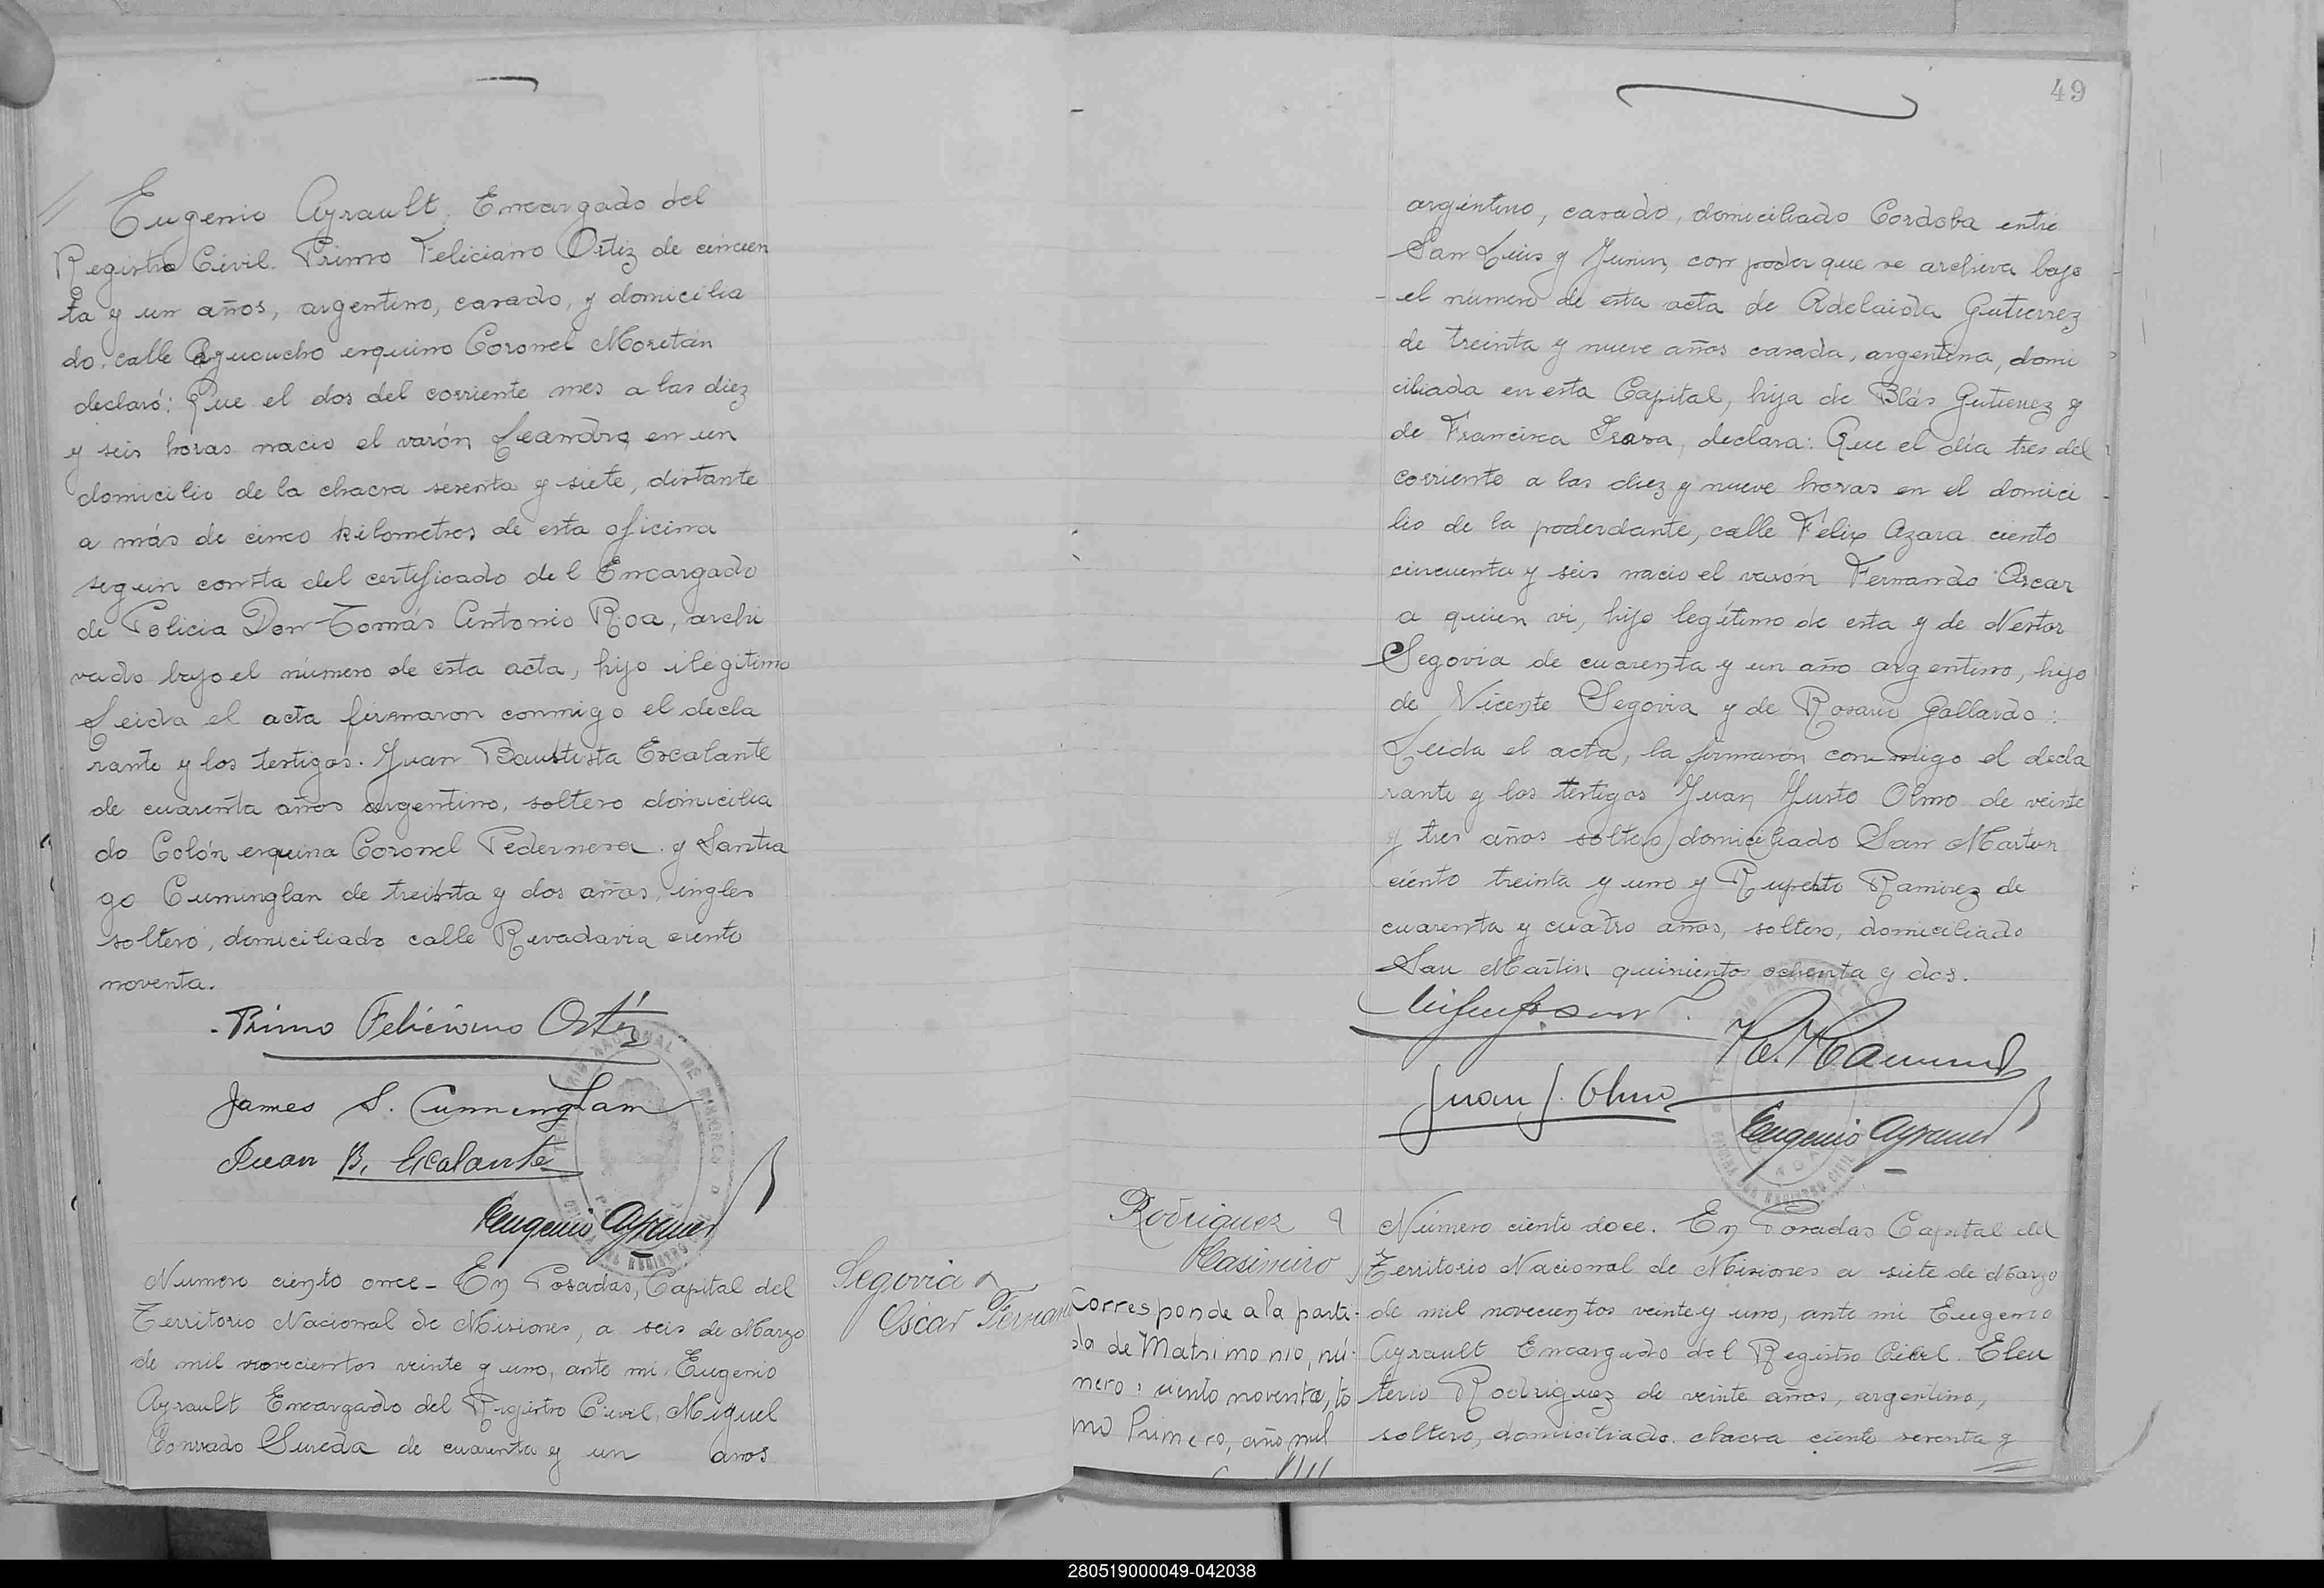 Eugenio Ayrault, Encargado del
Registro Civil. Primo Feliciano Ortiz de cincuen
ta y un años, argentino, casado, y domicilia
do calle Ayacucho esquina Coronel Moretán
declaró: Que el dos del corriente mes a las diez
y seis horas nacio el varón Leandro, en un
domicilio de la chacra sesenta y siete, distante
a más de cinco kilometros de esta oficina
segun consta del certificado del Encargado
de Policia Don Tomás Antonio Roa, archi
vado bajo el número de esta acta, hijo ilegitimo
Leida el acta firmaron conmigo el decla
rante y los testigos. Juan Bautista Escalante
de cuarenta años argentino, soltero domicilia
do Colón esquina Coronel Pedernera y Santia
go Cuminglan de treinta y dos años, ingles
soltero, domiciliado calle Rivadavia ciento
noventa.
Primo Feliciano Ortiz
James S. Cunningham
Juan B. Escalante
Eugenio Ayrault
Numero ciento once - En Posadas, Capital del
Territorio Nacional de Misiones, a seis de Marzo
de mil novecientos veinte y uno, ante mi Eugenio
Ayrault Encargado del Registro Civil, Miguel
Conrado Sureda de cuarenta y un años
Segovia
Oscar Fernan
49
argentino, casado, domiciliado Cordoba entre
San Luis y Junin, con poder que se archiva bajo
el número de esta acta de Adelaida Gutierrez
de treinta y nueve años casada, argentina, domi
ciliada en esta Capital, hija de Blás Gutierrez y
de Francisca declara: Que el día tres del
corriente a las diez y nueve horas en el domici
lio de la poderdante, calle Felix Azara ciento
cincuenta y seis nacio el varón Fernando Oscar
a quien vi, hijo legítimo de esta y de Nestor
Segovia de cuarenta y un año argentino, hijo
de Vicente Segovia y de Rosario Gallardo:
Leida el acta, la firmaron conmigo el decla
rante y los testigos Juan Justo Olmo de veinte
y tres años soltero domiciliado San Martin
ciento treinta y uno y Ruperto Ramirez de
cuarenta y cuatro años, soltero, domiciliado
San Martin quinientos ochenta y dos.
Juan J. Olmo
Eugenio Ayrault
Rodriguez
Casimiro
Corresponde a la parti-
da de Matrimonio, nú-
mero: ciento noventa, to
mo Primero, año mil
Número ciento doce. En Posadas Capital del
Territorio Nacional de Misiones a siete de Marzo
de mil novecientos veinte y uno, ante mi Eugenio
Ayrault Encargado del Registro Civil. Eleu
terio Rodriguez de veinte años, argentino,
soltero, domiciliado chacra ciento sesenta y
280519000049-042038